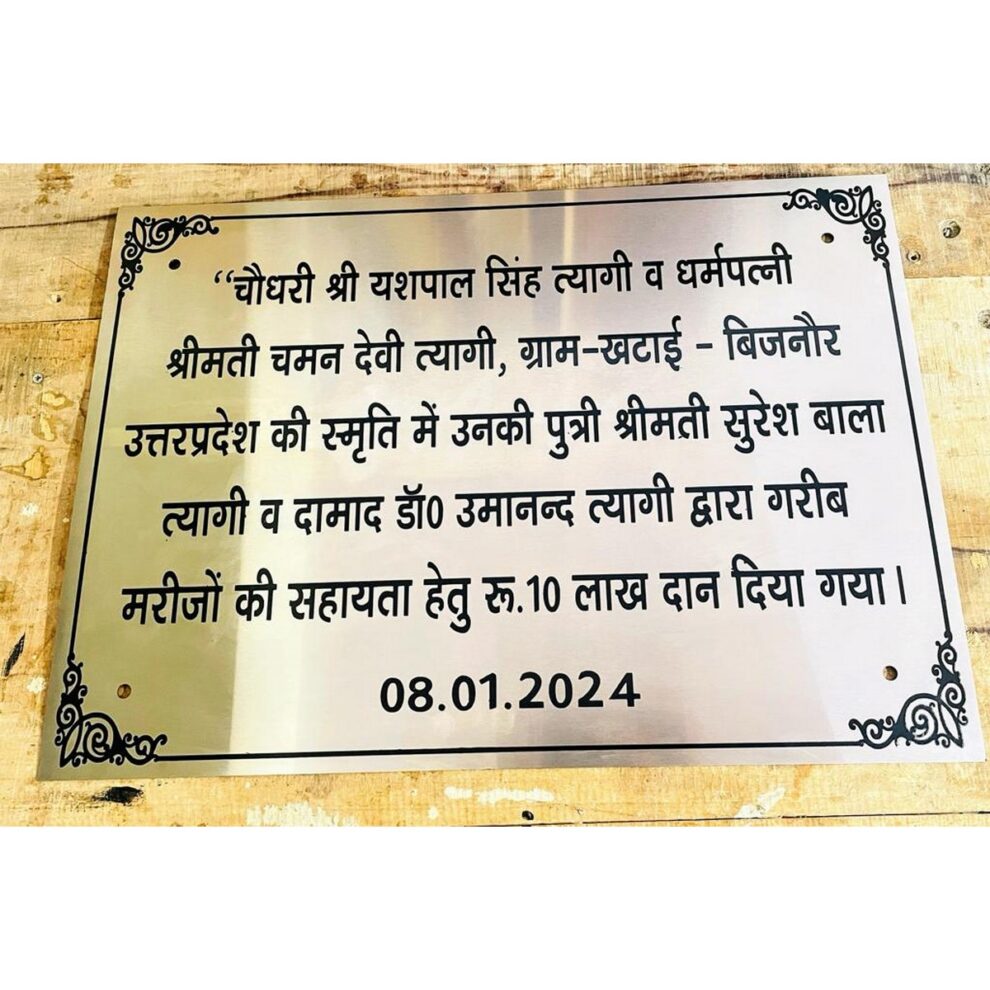 “चौधरी श्री यशपाल सिंह त्यागी व धर्मपत्नी
श्रीमती चमन देवी त्यागी, ग्राम-खटाई - बिजनौर
उत्तरप्रदेश की स्मृति में उनकी पुत्री श्रीमती सुरेश बाला
त्यागी व दामाद डॉ0 उमानन्द त्यागी द्वारा गरीब
मरीजों की सहायता हेतु रू.10 लाख दान दिया गया।
08.01.2024